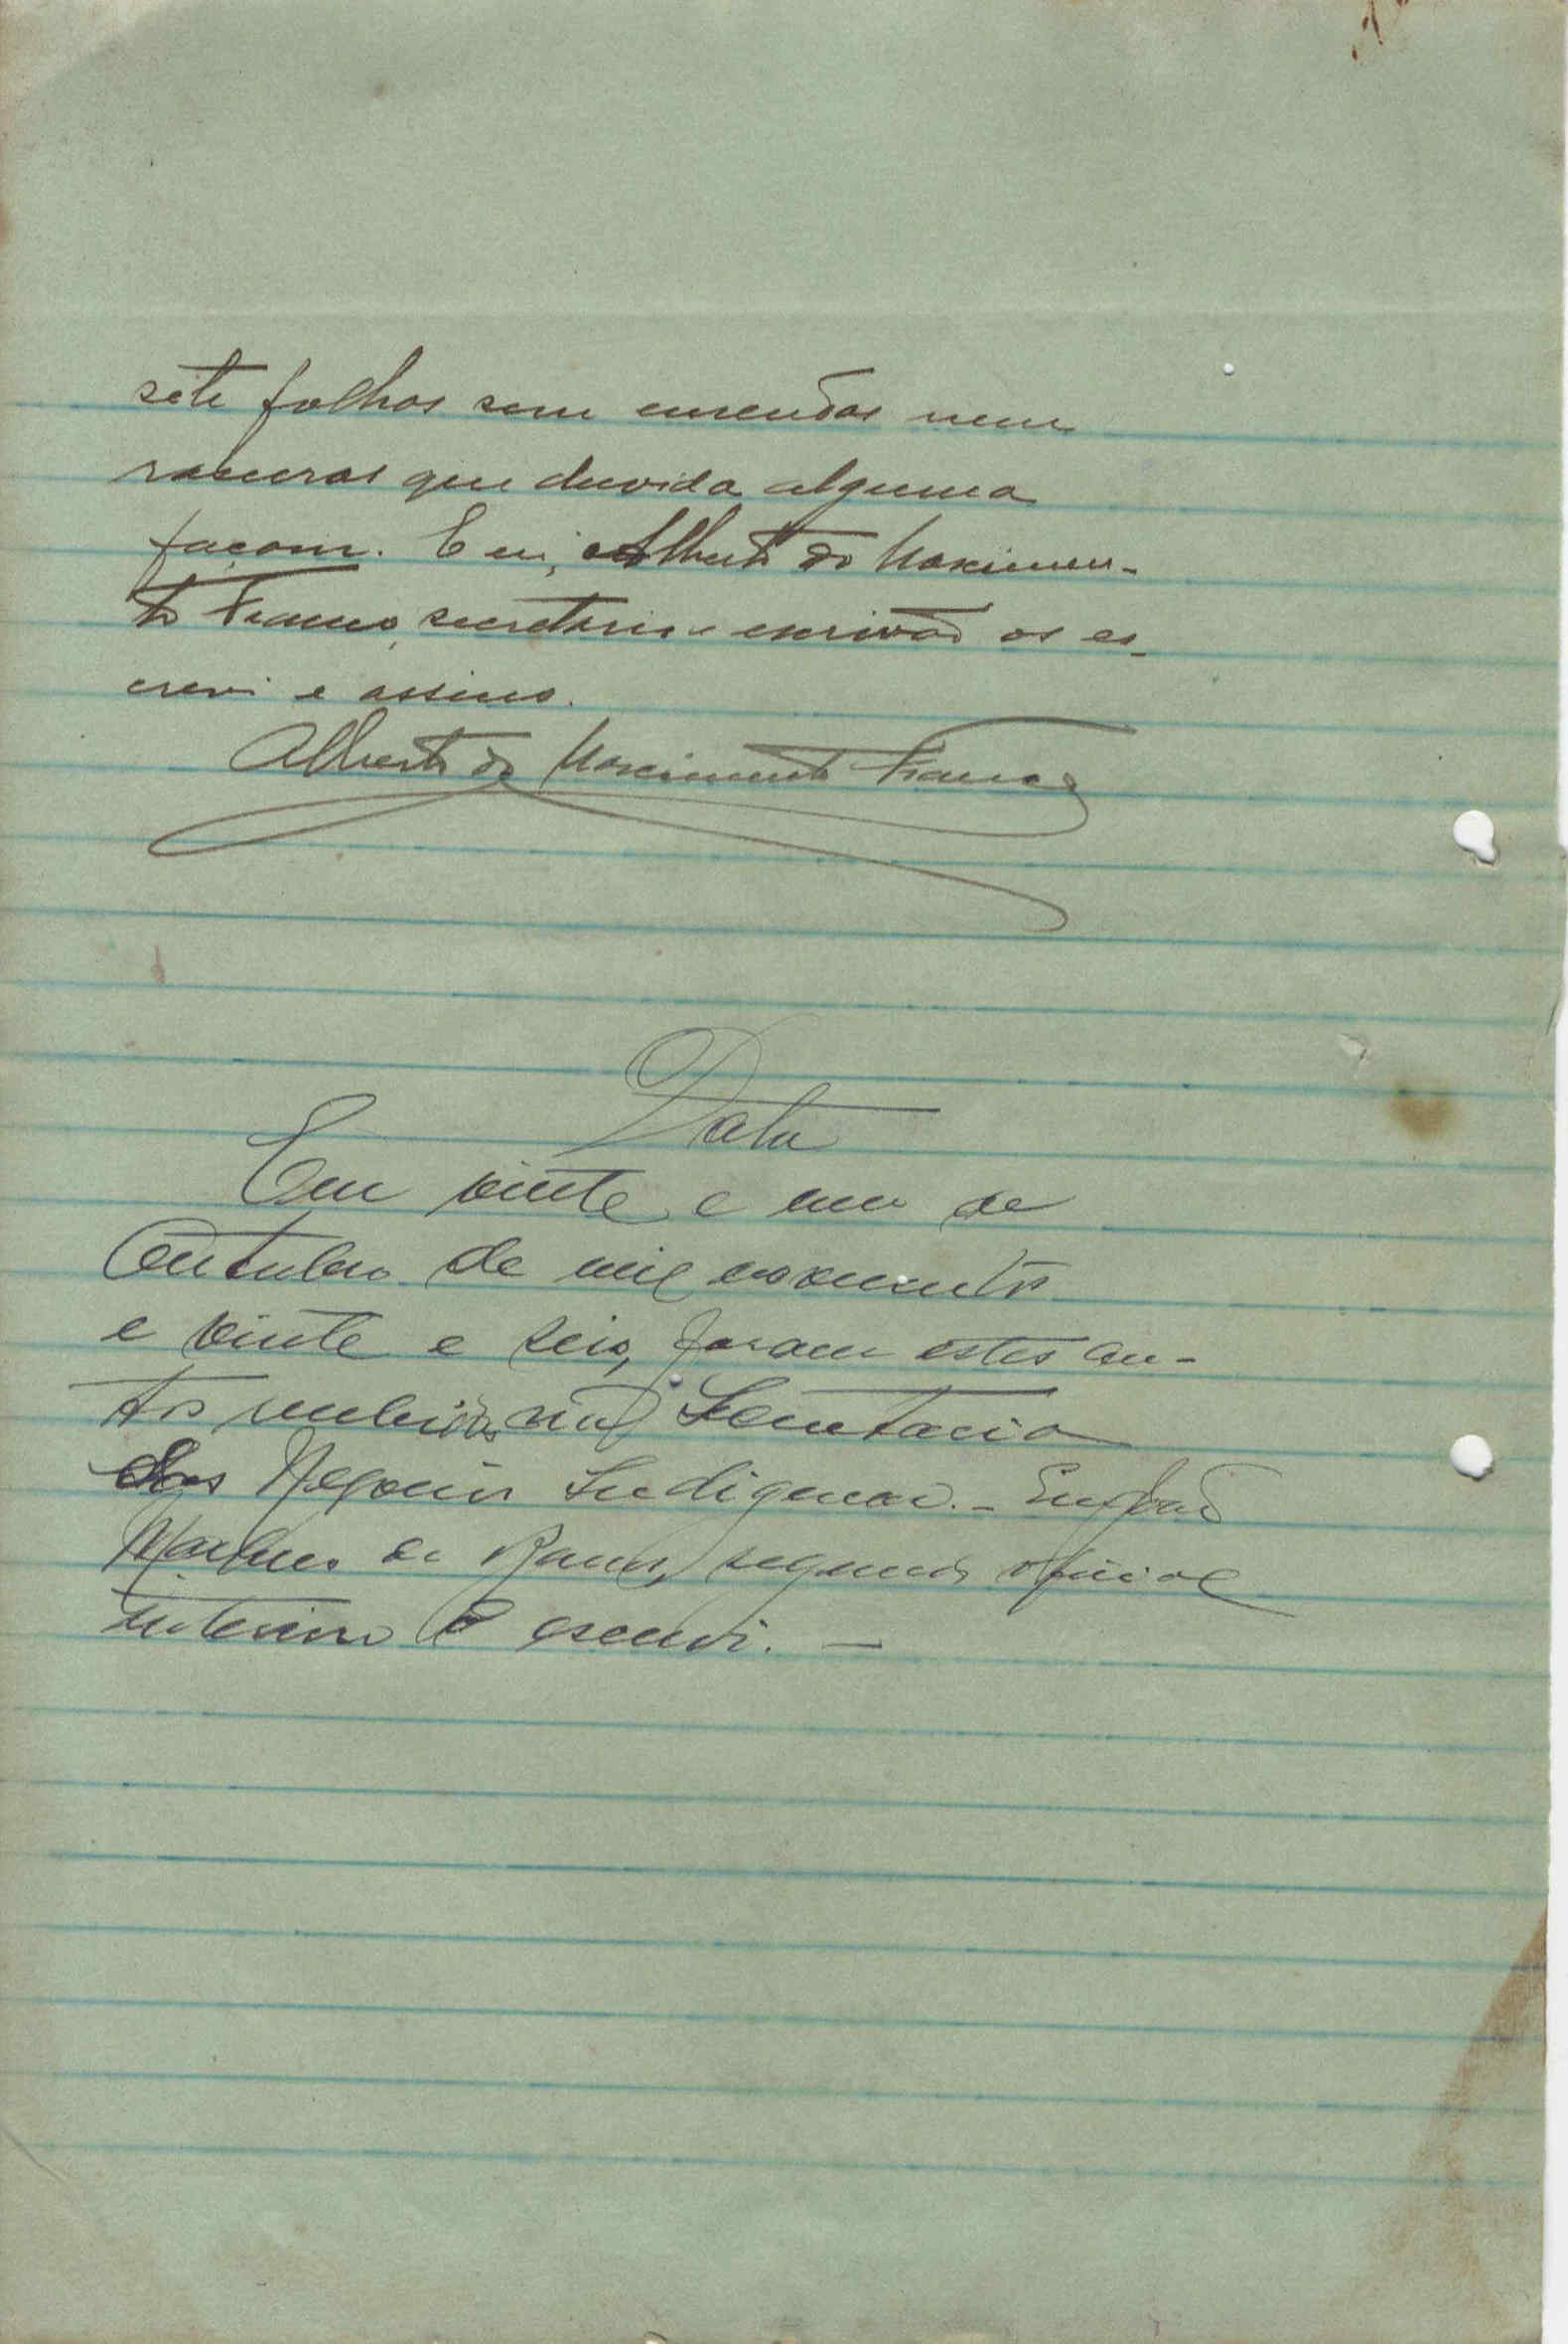 sete folhas sem emendas nem
rasuras que duvida alguma
façam. E eu, Alberto do Nascimen-
to Franco, secretario e escrivão os es-
crevi e assino.
Alberto do Nascimento Franco
Data
Em vinte e um de
Outubro de mil novecentos
e vinte e seis, foram estes au-
tos recebidos na Secretaria
dos Negocios Indigenas. - Eu, João
de Ramos, segundo oficial
interino o escrevi. -